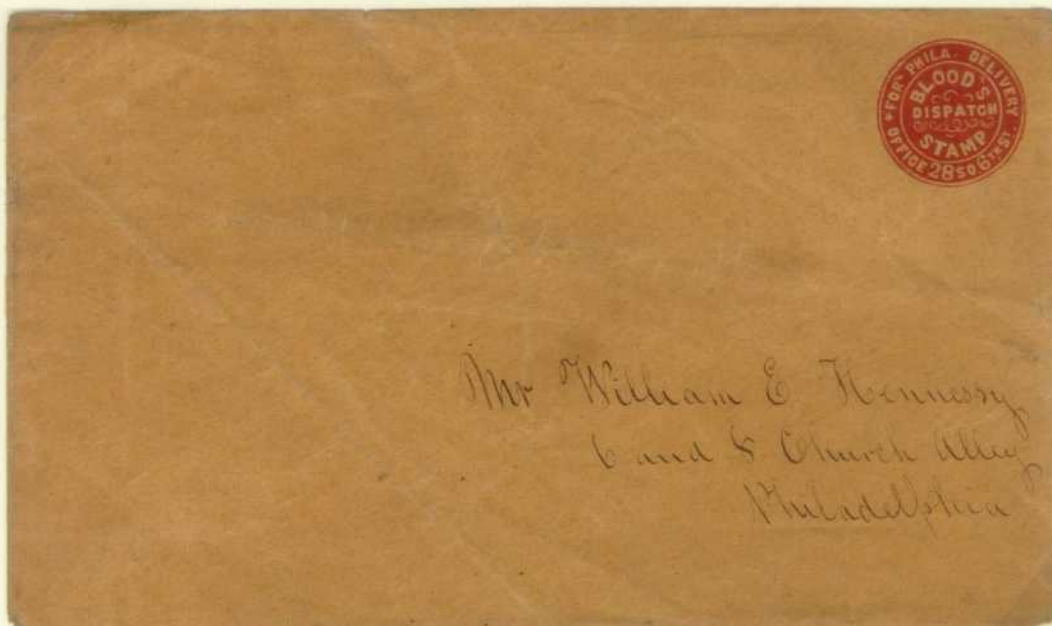 *FOR PHILA. DELIVERY
BLOOD'S
DISPATCH
STAMP
OFFICE 28 SO 6TH ST.
Mr William E Hennessy
6 and 8 Church Alley
Philadelphia